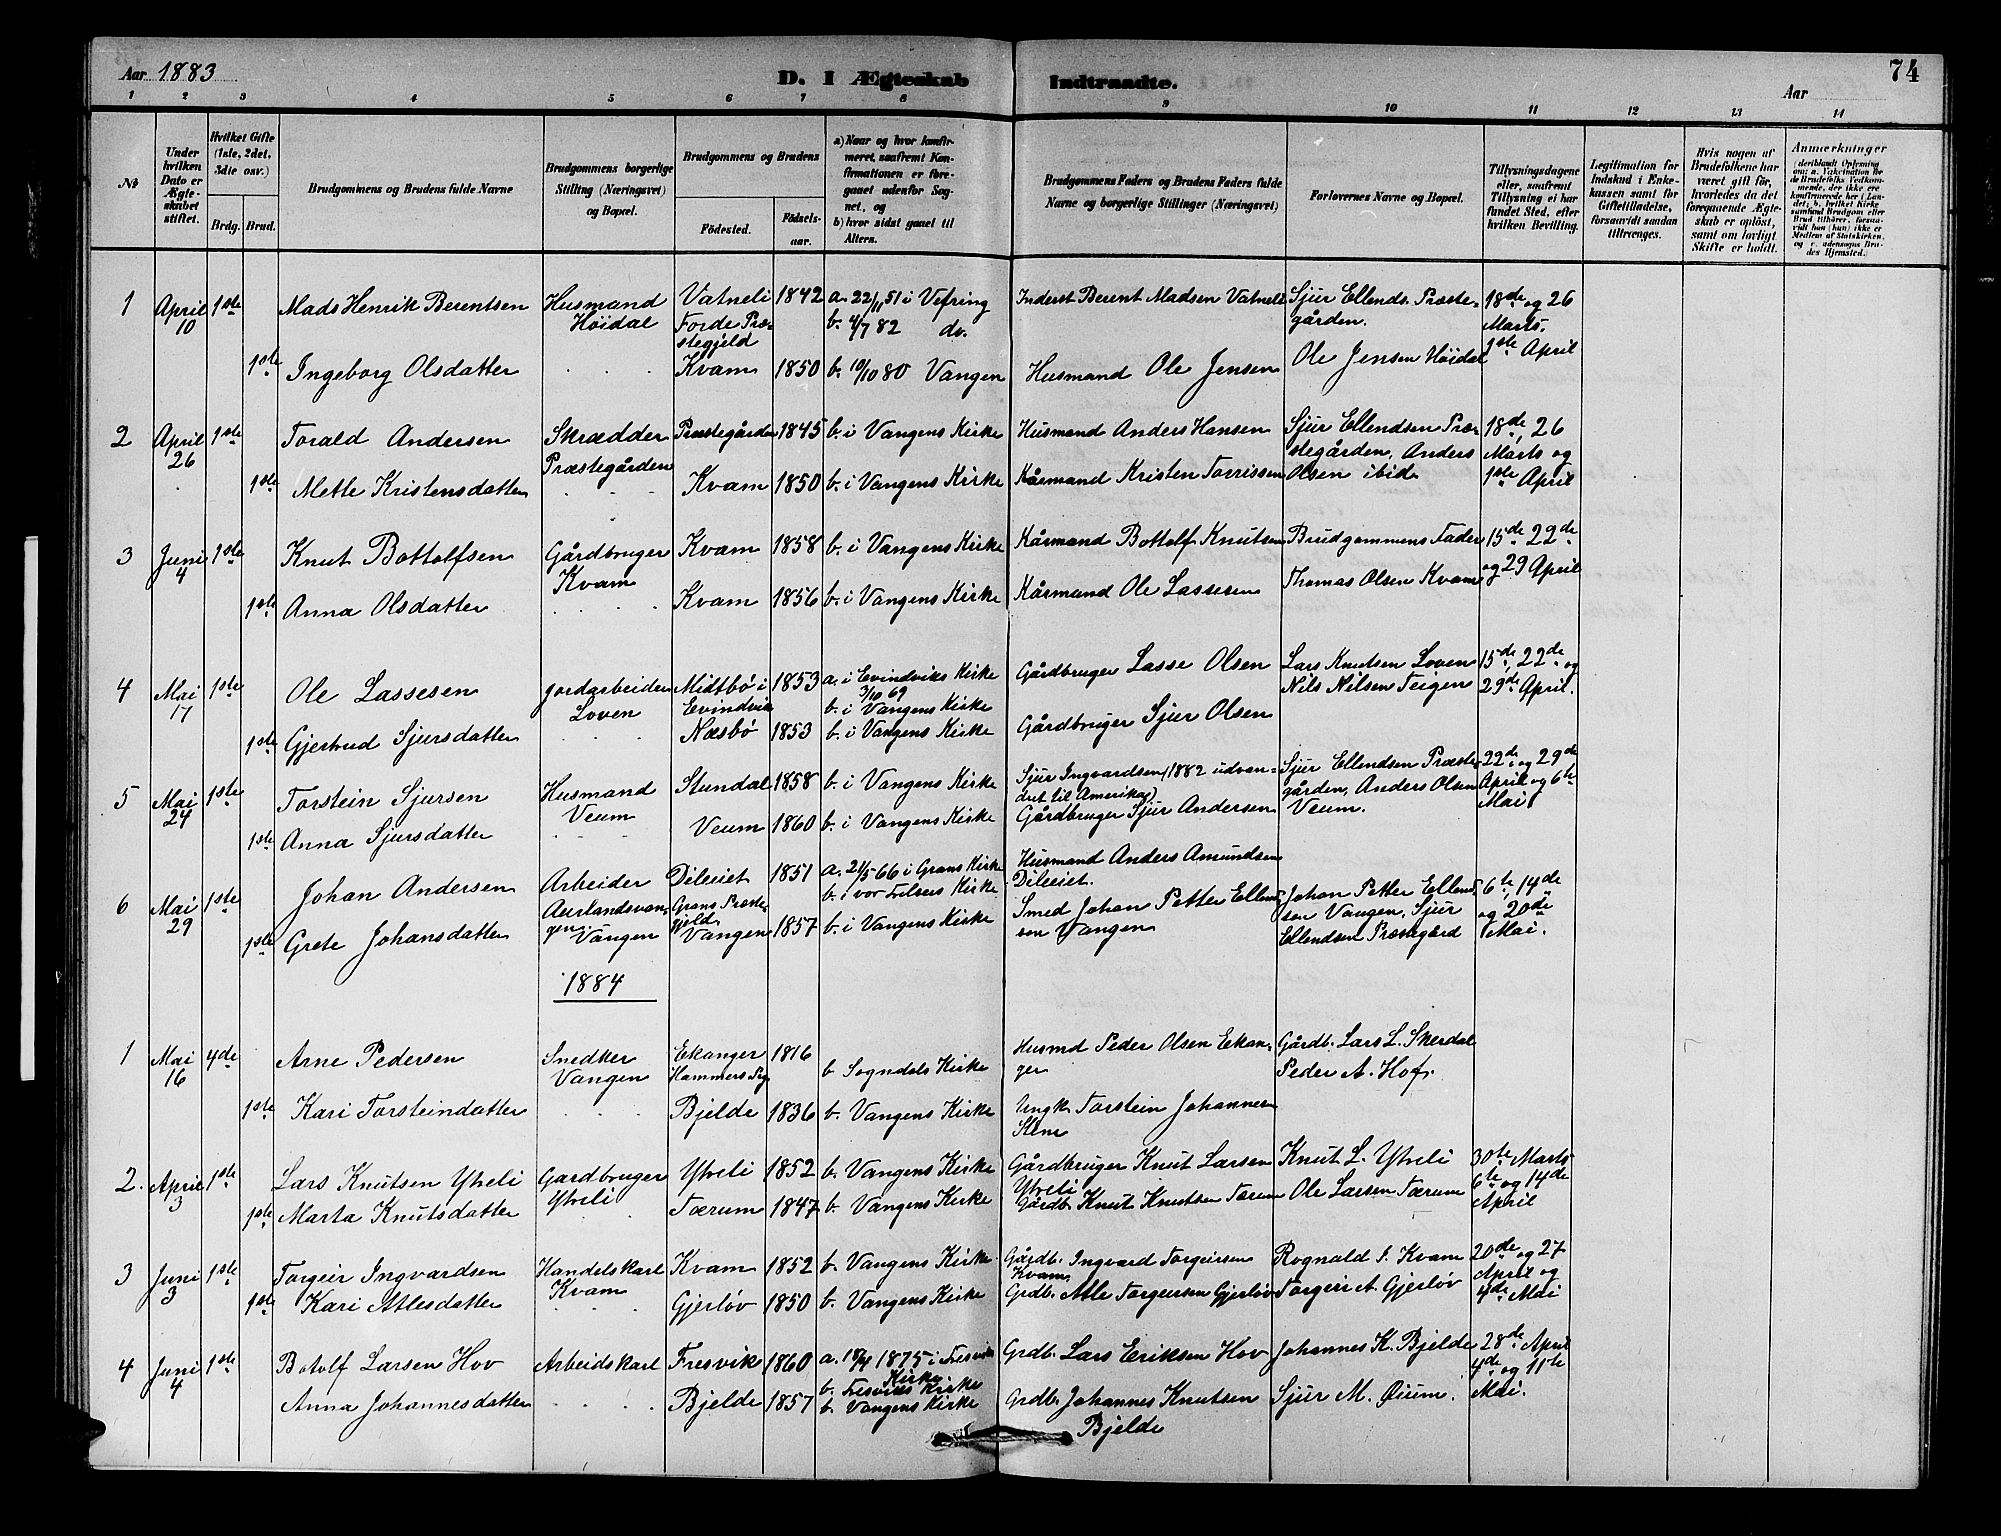 Aar 1883
D. I Ægteskab Indtraadte.
Aar
74
1 2 3 4 5 6 7 8 9 10 11 12 13 14
No
Under hvilken Dato er Ægteskabet stiftet.
Hvilket Gifte (1ste, 2det, 3die osv.)
Brdg. Brud.
Brudgommens og Brudens fulde Navne
Brudgommens borgerlige Stilling (Næringsvei) og Bopæl.
Brudgommens og Brudens
Födested. Födselsaar.
a) Naar og hvor konfirmeret, saafremt Konfirmationen er foregaaet udenfor Sognet, og
b) hvor sidst gaaet til Alters.
Brudgommens Faders og Brudens Faders fulde Navne og borgerlige Stillinger (Næringsvei)
Forlovernes Navne og Bopæl.
Tillysningsdagene eller, saafremt Tillysning ei har fundet Sted, efter hvilken Bevilling.
Legitimation for Indskud i Enkekassen samt for Giftetilladelse, forsaavidt saadan tiltrænges.
Hvis nogen af Brudefolkene har været gift för, hvorledes da det foregaaende Ægteskab er oplöst, samt om lovligt Skifte er holdt.
Anmærkninger (deriblandt Oplysning om: a. Vaccination for de Brudefolks Vedkommende, der ikke ere konfirmerede her i Landet; b. hvilket Kirkesamfund Brudgom eller Brud tilhører, forsaavidt han (hun) ikke er Medlem af Statskirken, og c. udensogns Brudes Hjemsted.)
1 April 10 1ste Mads Henrik Berentsen Husmand Höidal Vatneli Forde Præstegjeld 1842 a. 22/11 51 i Vefring b. 4/7 82 do. Inderst Berent Madsen Vatneli Sjur Ellends. Præstegården. 18de og 26 Marts.
1ste Ingeborg Olsdatter Kvam 1850 b. 10/10 80 Vangen Husmand Ole Jensen Ole Jensen Höidal 1ste April
2 April 26 1ste Torald Andersen Skrædder Præstegården Præstegården 1845 b. i Vangens Kirke Husmand Anders Hansen Sjur Ellendsen Præstegården, Anders Olsen ibid 18de, 26 Marts og 1ste April
1ste Mette Kristensdatter Kvam 1850 b. i Vangens Kirke Kårmand Kristen Torrissen
3 Juni 4 1ste Knut Bottolfsen Gårdbruger Kvam Kvam 1858 b. i Vangens Kirke Kårmand Bottolf Knutsen Brudgommens Fader 15de 22de og 29 April
1ste Anna Olsdatter Kvam 1856 b. i Vangens Kirke Kårmand Ole Lassesen Thomas Olsen Kvam
4 Mai 17 1ste Ole Lassesen Jordarbeider Loven Midtbö i Evindvik 1853 a. i Evindviks Kirke 3/10 69 b. i Vangens Kirke Gårdbruger Lasse Olsen Lars Knutsen Loven Nils Nilsen Teigen 15de, 22de og 29de April.
1ste Gjertrud Sjursdatter Næsbö 1853 b. i Vangens Kirke Gårdbruger Sjur Olsen
5 Mai 24 1ste Torstein Sjursen Husmand Veum Stundal 1858 b. i Vangens Kirke Sjur Ingvardsen (1882 udvandret til Amerika) Sjur Ellendsen Præstegården, Anders Olsen Veum. 22de og 29de April og 6te Mai
1ste Anna Sjursdatter Veum 1860 b. i Vangens Kirke Gårdbruger Sjur Andersen
6 Mai 29 1ste Johan Andersen Arbeider Aurlandsvangen Dileeiet Grans Præstegjeld 1851 a. 21/5 66 i Grans Kirke b. i vor Frelsers Kirke Husmand Anders Amundsen Dileeiet. Johan Petter Ellendsen Vangen, Sjur Ellendsen Præstegård 6te, 14de og 20de Mai.
1ste Grete Johansdatter Vangen Vangen 1857 b. i Vangens Kirke Smed Johan Petter Ellendsen Vangen
1884
1 Mai 16 4de Arne Pedersen Snedker Vangen Ekanger Hammers Pg. 1816 b Sogndals Kirke Husmd Peder Olsen Ekanger Gårdb. Lars L. Skerdal Peder A. Hof.
1ste Kari Torsteindatter Bjelde 1836 b. Vangens Kirke Ungk. Torstein Johannesen
2. April 3 1ste Lars Knutsen Ytreli Gardbruger Ytreli Ytreli 1852 b. Vangens Kirke Gårdbruger Knut Larsen Ytreli Knut L. Ytreli 30te Marts 6te og 14de April
1ste Marta Knutsdatter Tærum 1847 b. Vangens Kirke Gårdb. Knut Knutsen Tærum Ole Larsen Tærum
3 Juni 3 1ste Torgeir Ingvardsen Handelskarl Kvam Kvam 1852 b. Vangens Kirke Gårdb. Ingvard Torgeirsen Kvam Rognald I. Kvam 20de og 27 April og 4de Mai
1ste Kari Atlesdatter Gjerlöv 1850 b. Vangens Kirke Grdb. Atle Torgeirsen Gjerlöv Torgeir A. Gjerlöv
4 Juni 4 1ste Botolf Larsen Hov Arbeidskarl Fresvik 1860 a. 18/4 1875 i Fresvik Kirke b. Fresviks Kirke Grdb. Lars Eriksen Hov Johannes K. Bjelde 28de April 4de og 11te Mai.
Anna Johannesdatter Bjelde 1857 b. Vangens Kirke Grdb. Johannes Knutsen Bjelde Sjur M. Øium.